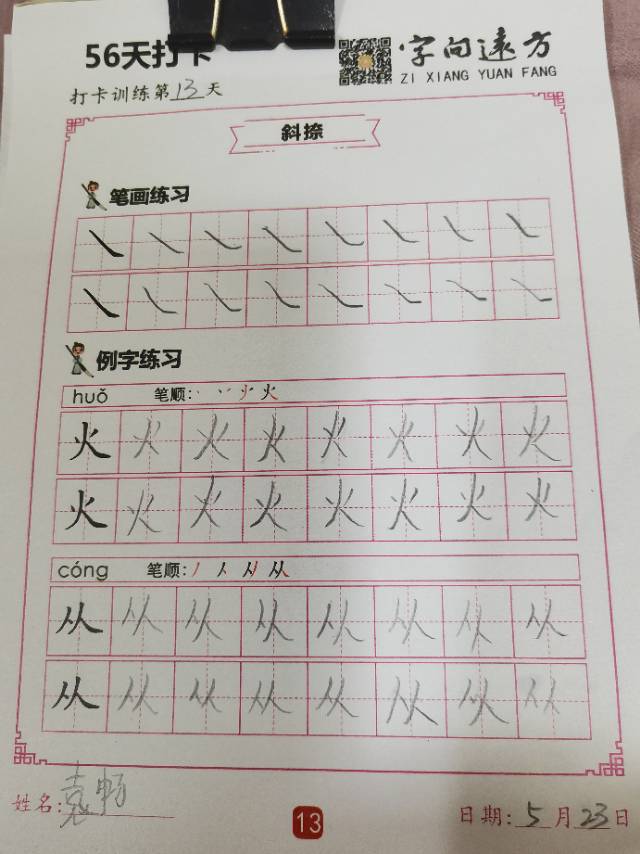 56天打卡
字向遠方
ZI XIANG YUAN FANG
打卡训练第13天
斜捺
笔画练习
㇏ ㇏ ㇏ ㇏ ㇏ ㇏ ㇏ ㇏
㇏ ㇏ ㇏ ㇏ ㇏ ㇏ ㇏ ㇏
例字练习
huǒ 笔顺: 火
火 火 火 火 火 火 火 火
火 火 火 火 火 火 火 火
cóng 笔顺: 丿 人 从
从 从 从 从 从 从 从 从
从 从 从 从 从 从 从 从
姓名: 袁畅
13
日期: 5月23日